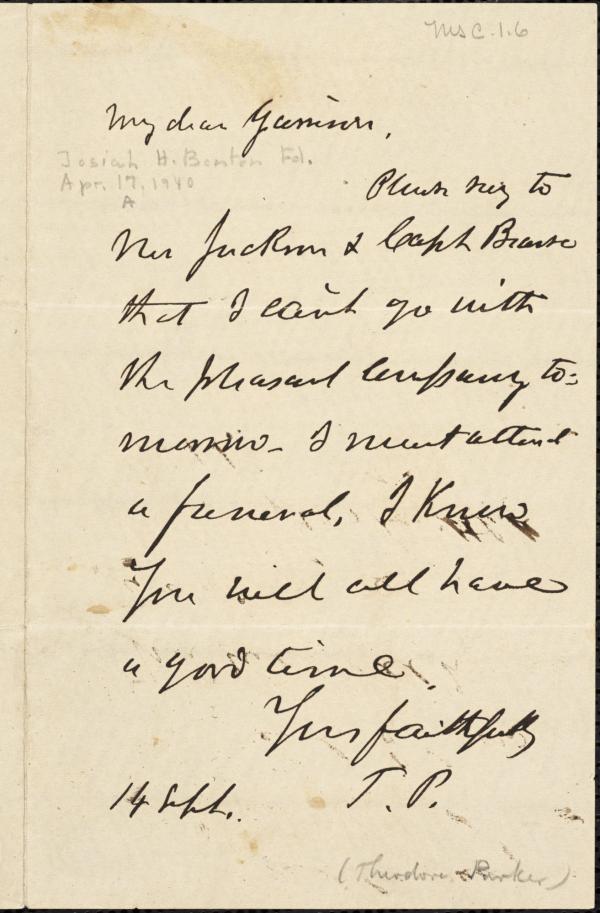 Ms C.1.6
My dear Garrison,
Josiah H. Benton Fd.
Apr. 17, 1940
A
Please say to
Mr Jackson & Capt Bearse
that I can't go with
the pleasant company to-
morrow - I must attend
a funeral, I know
You will all have
a good time.
Yrs faithfully
14 Sept. T. P.
(Theodore Parker)